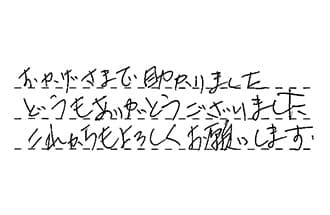 おかげさまで助かりました
どうもありがとうございました
これからもよろしくお願いします